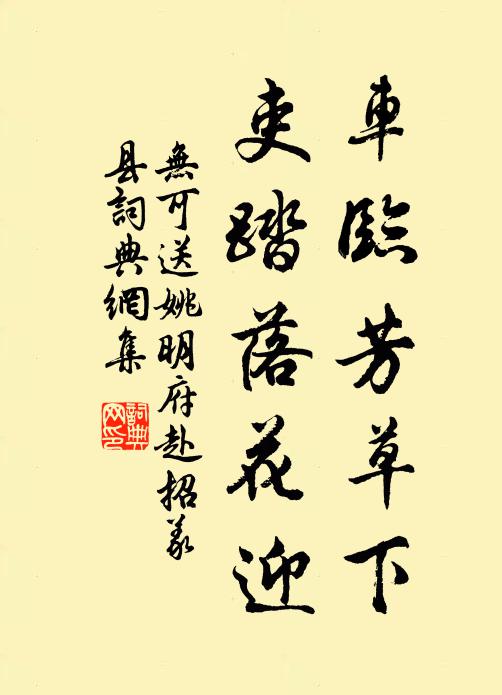 車臨芳草下
吏踏落花迎
無可送姚明府赴招義
县詞典網集
詞典
网印